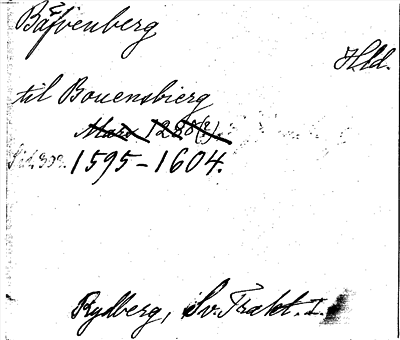 Båfvenberg
Hld.
til Bouensbierg
Mars 1288(?).
Sid. 303. 1595-1604.
Rydberg, Sv. Trakt. I.